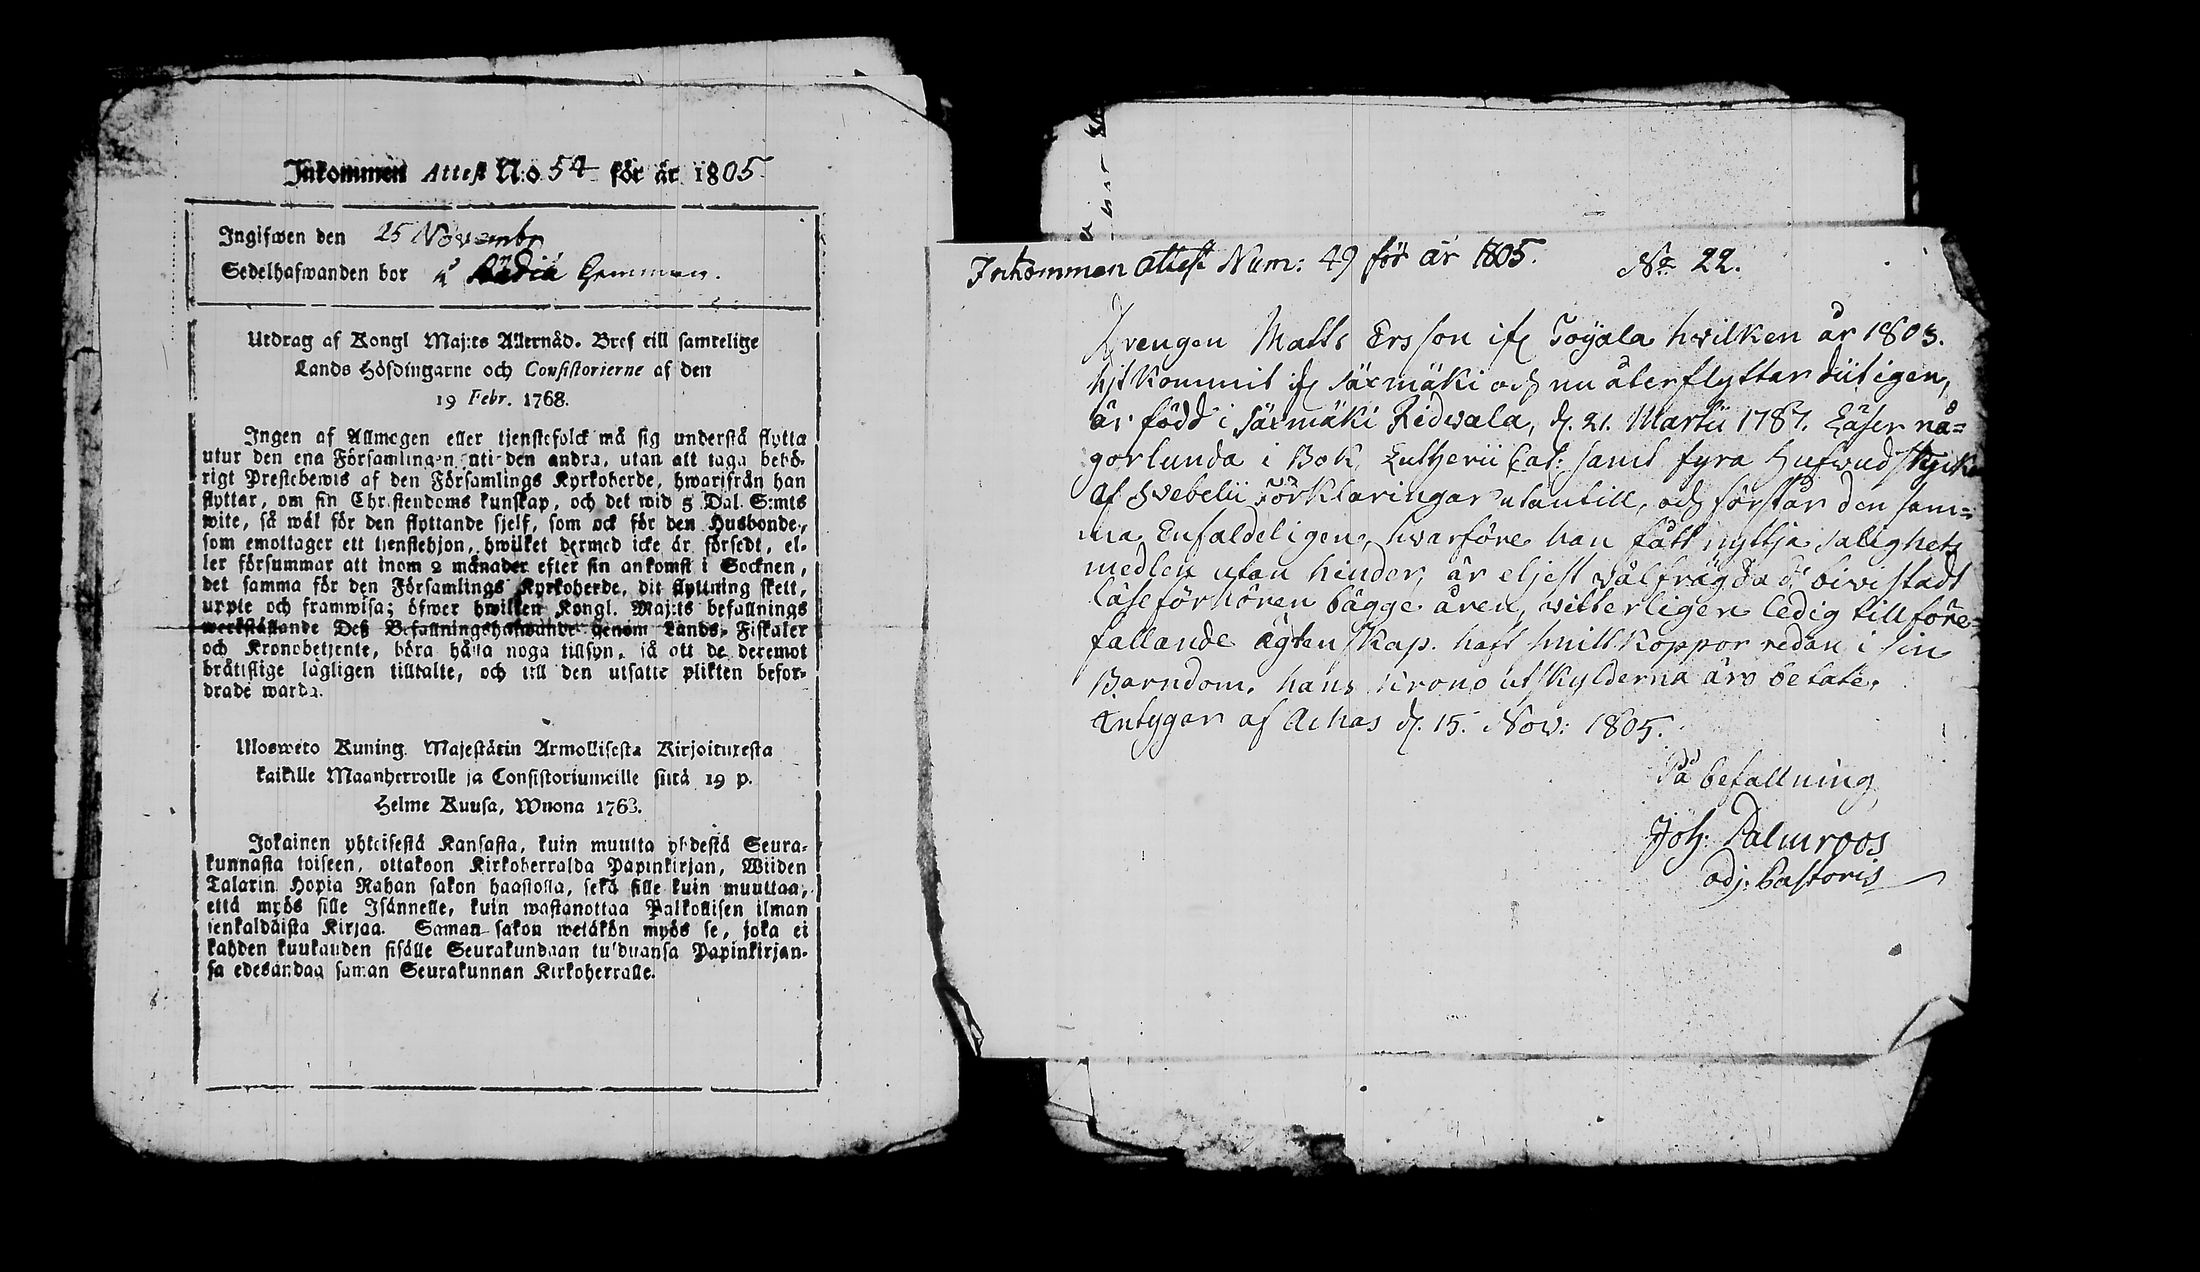 Inkommen Attest N:o 54 för år 1805.
Ingifwen den 25 Novembr
Sedelhafwanden bor i Gemmen.
Utdrag af Kongl Maj:ts Allernåd. Bref till samtelige
Lands Höfdingarne och Consistorierne af den
19 Febr. 1768.
Ingen af Allmogen eller tjenstefolck må sig understå flytta
utur den ena Församlingen uti den andra, utan att taga behö-
rigt Prestebewis af den Församlings Kyrkoherde, hwarifrån han
flyttar, om sin Christendoms kunskap, och det wid 5 Dal. S:mts
wite, så wäl för den flyttande sjelf, som ock för den Husbonde,
som emottager ett tienstehjon, hwilket dermed icke är försedt, el-
ler försummar att inom 2 månader efter sin ankomst i Socknen,
det samma för den Församlings Kyrkoherde, dit flyttning skett,
uppte och framwisa; öfwer hwilken Kongl. Maj:ts befallnings
werkställande Deß Befallningshafwande genom Lands-Fiskaler
och Kronobetjente, böra hålla noga tillsyn, så att de deremot
brättslige lagligen tilltalte, och till den utsatte plikten befor-
drade warda.
Ulosweto Kuning. Majestätin Armollisesta Kirjoituxesta
kaikille Maanherroille ja Consistoriumeille siitä 19 p.
Helme Kuusa, Wuona 1768.
Jokainen yhteisestä Kansasta, kuin muutta yhdestä Seura-
kunnasta toiseen, ottakoon Kirkoherralda Papinkirjan, Wiiden
Talarin Hopia Rahan sakon haastolla, sekä sille kuin muuttaa,
että myös sille Isännelle, kuin wastanottaa Palkollisen ilman
senkaldaista Kirjaa. Saman sakon wetäkön myös se, joka ei
kahden kuukauden sisälle Seurakundaan tulduansa Papinkirjan-
sa edesandaa saman Seurakunnan Kirkoherralle.
Inkommen attest Num: 49 för år 1805. No 22.
Drengen Matts Ersson ifr Toijala hvilken år 1803.
hit kommit ifr Säxmäki och nu återflyttar dit igen,
är född i Säxmäki Ridvala, d. 21. Martii 1787. Läser nå=
gorlunda i Bok, Lutherii Cat: samt fyra Hufvudstycke
af Svebelii Förklaringar utantill, och förstår den sam=
ma Enfaldeligen, hvarföre han fått nyttja salighets
medlen utan hinder, är eljest välfrägdad bivistadt
läseförhören bägge åren, vitterligen ledig till före=
fallande ägtenskap. haft smittkoppor redan i sin
Barndom. hans Krono utskylderna äro betalte.
Intygar af Achas d. 15. Nov: 1805.
På befallning
Joh: Palmroos
adj: Pastoris